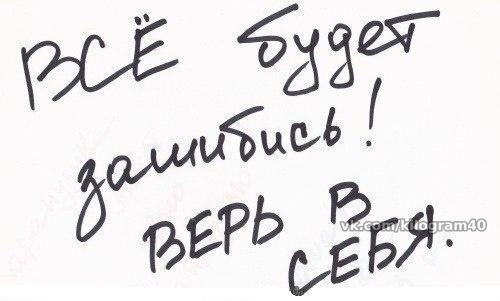 ВСЁ будет
зашибись!
ВЕРЬ В
СЕБЯ.
vk.com/kilogram40